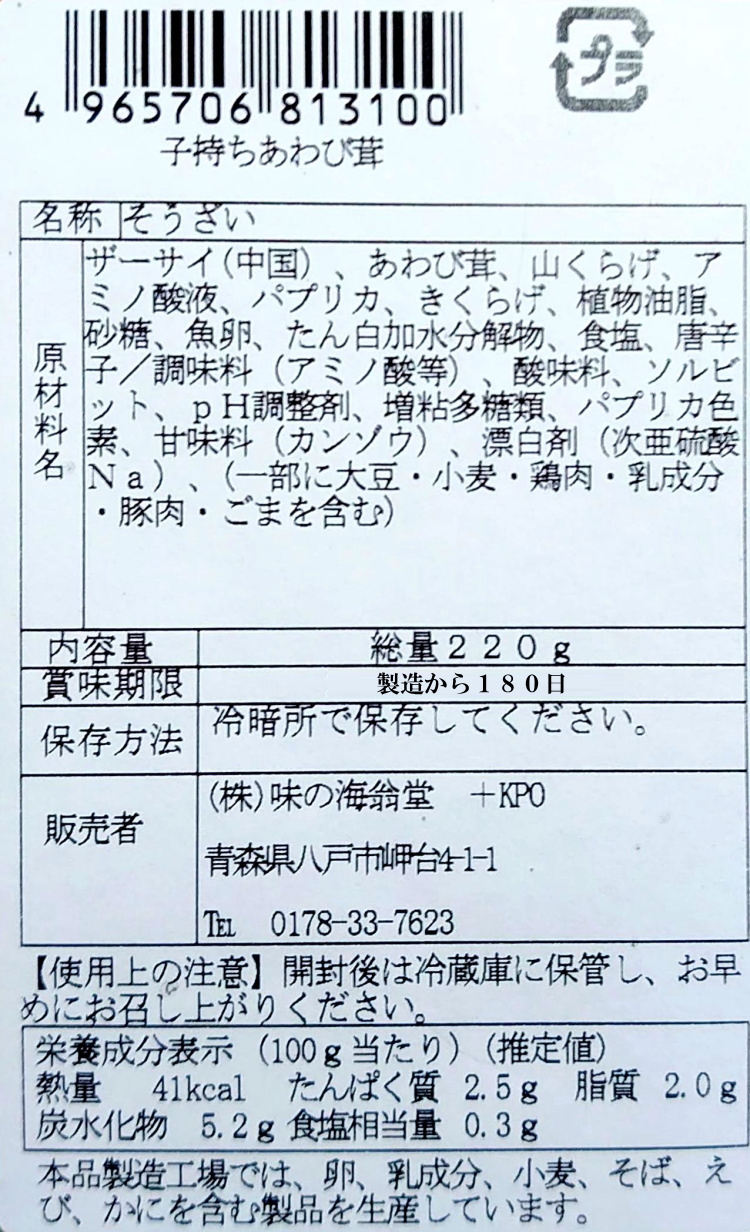 プラ
4 965706 813100
子持ちあわび茸
名称 そうざい
原材料名
ザーサイ(中国)、あわび茸、山くらげ、ア
ミノ酸液、パプリカ、きくらげ、植物油脂、
砂糖、魚卵、たん白加水分解物、食塩、唐辛
子／調味料（アミノ酸等）、酸味料、ソルビ
ット、ｐＨ調整剤、増粘多糖類、パプリカ色
素、甘味料（カンゾウ）、漂白剤（次亜硫酸
Ｎａ）、(一部に大豆・小麦・鶏肉・乳成分
・豚肉・ごまを含む)
内容量 総量２２０ｇ
賞味期限 製造から１８０日
保存方法 冷暗所で保存してください。
販売者 (株)味の海翁堂 ＋KPO
青森県八戸市岬台4-1-1
TEL 0178-33-7623
【使用上の注意】開封後は冷蔵庫に保管し、お早
めにお召し上がりください。
栄養成分表示（100ｇ当たり）(推定値)
熱量 41kcal たんぱく質 2.5ｇ 脂質 2.0ｇ
炭水化物 5.2ｇ 食塩相当量 0.3ｇ
本品製造工場では、卵、乳成分、小麦、そば、え
び、かにを含む製品を生産しています。